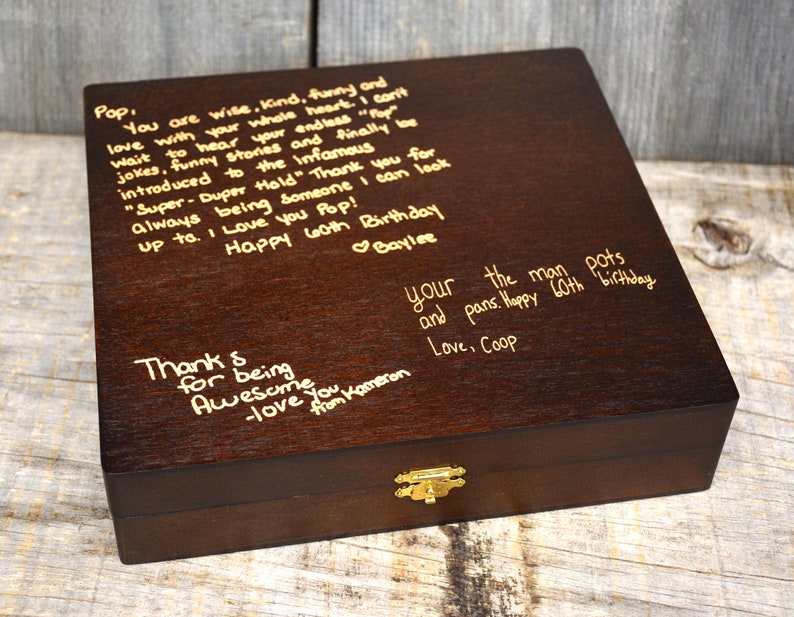 Pop,
You are wise, kind, funny and
love with your whole heart. I can't
wait to hear your endless "Pop"
jokes, funny stories and finally be
introduced to the Infamous
"Super-Duper Hold" Thank you for
always being someone I can look
up to. I Love you Pop!
Happy 60th Birthday
♡Baylee
your the man pots
and pans. Happy 60th birthday
Love, Coop
Thanks
for being
Awesome
-love you
from Kameron